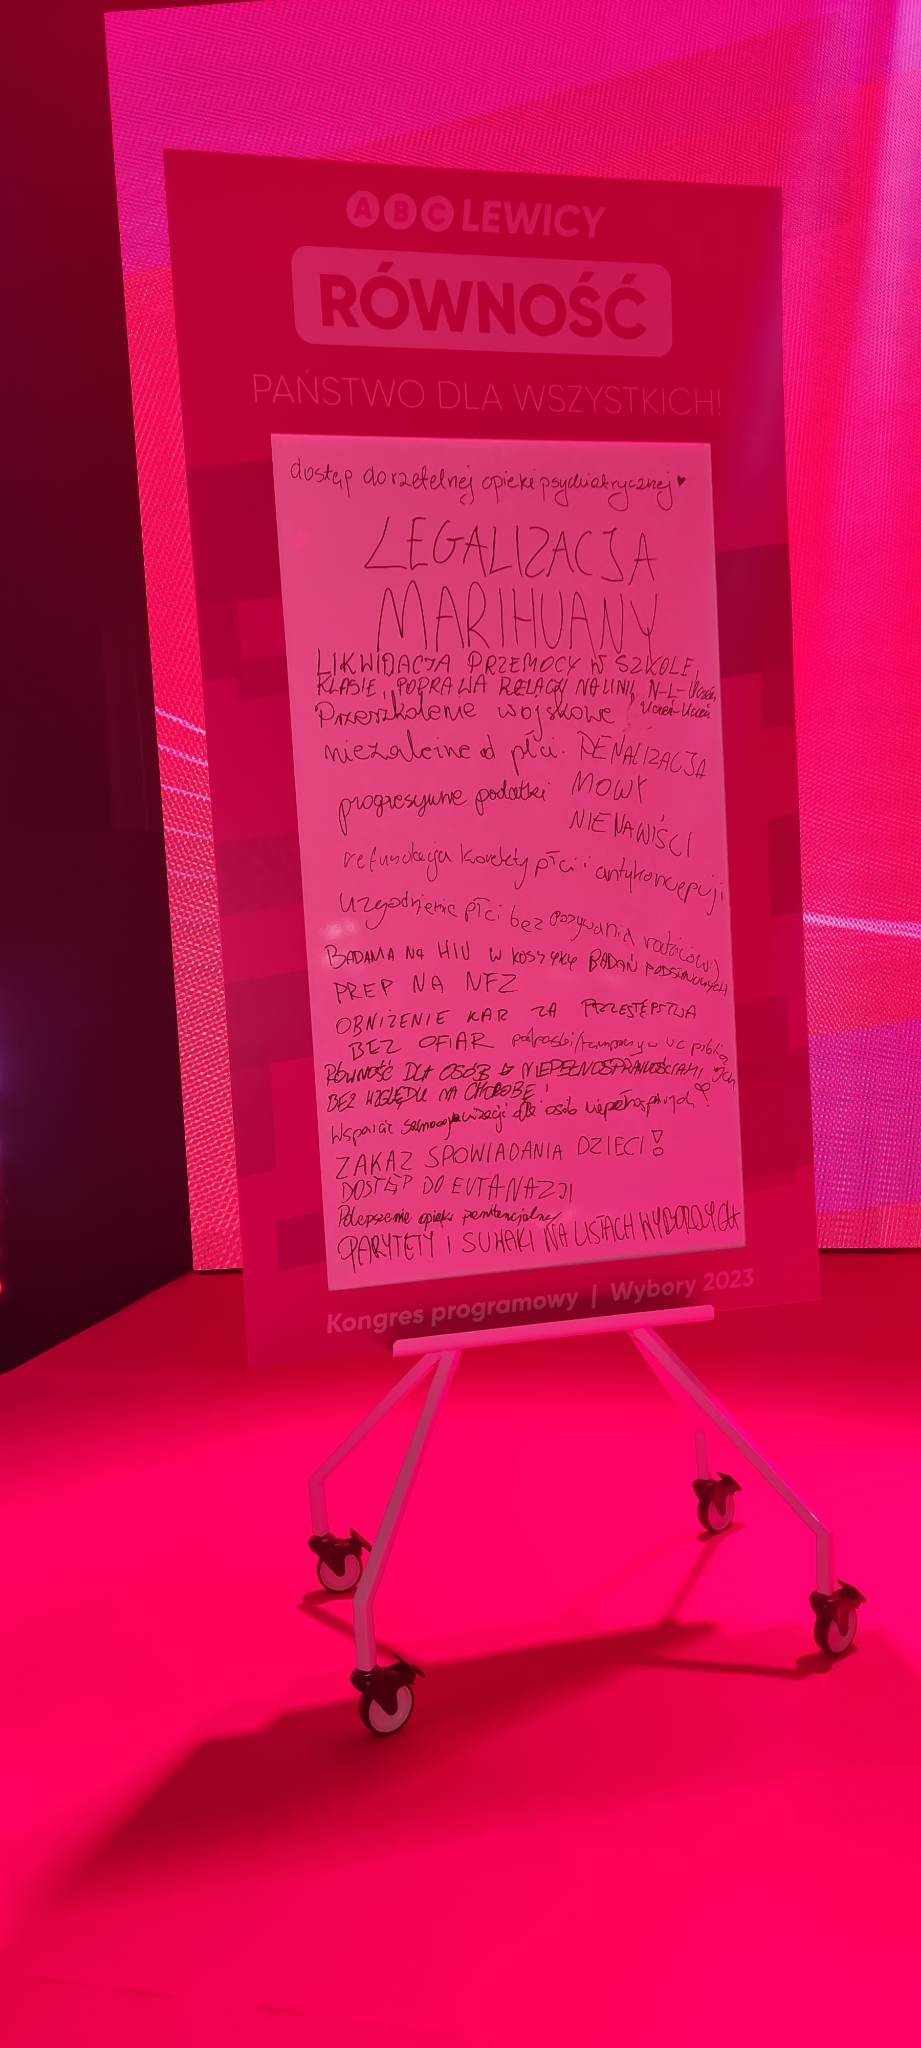 ABC LEWICY
RÓWNOŚĆ
PAŃSTWO DLA WSZYSTKICH!
dostęp do rzetelnej opieki psychiatrycznej ♥
LEGALIZACJA
MARIHUANY
LIKWIDACJA PRZEMOCY W SZKOLE,
KLASIE, POPRAWA RELACJI NA LINII N-L-Uczeń
Uczeń-Uczeń
Przeszkolenie wojskowe
niezależne od płci.
PENALIZACJA
MOWY
NIENAWIŚCI
progresywne podatki
refundacja korekty płci i antykoncepcji
uzgodnienie płci bez pozywania rodziców :)
BADANIA NA HIV W KOSZYKU BADAŃ PODSTAWOWYCH
PREP NA NFZ
OBNIŻENIE KAR ZA PRZESTĘPSTWA
BEZ OFIAR
podpaski/tampony w WC publicznych
RÓWNOŚĆ DLA OSÓB Z NIEPEŁNOSPRAWNOŚCIAMI
BEZ WZGLĘDU NA CHOROBĘ!
Wsparcie dla osób niepełnosprawnych!
ZAKAZ SPOWIADANIA DZIECI!
DOSTĘP DO EUTANAZJI
Polepszenie opieki penitencjalnej
PARYTETY I SUWAKI NA LISTACH WYBORCZYCH
Kongres programowy | Wybory 2023